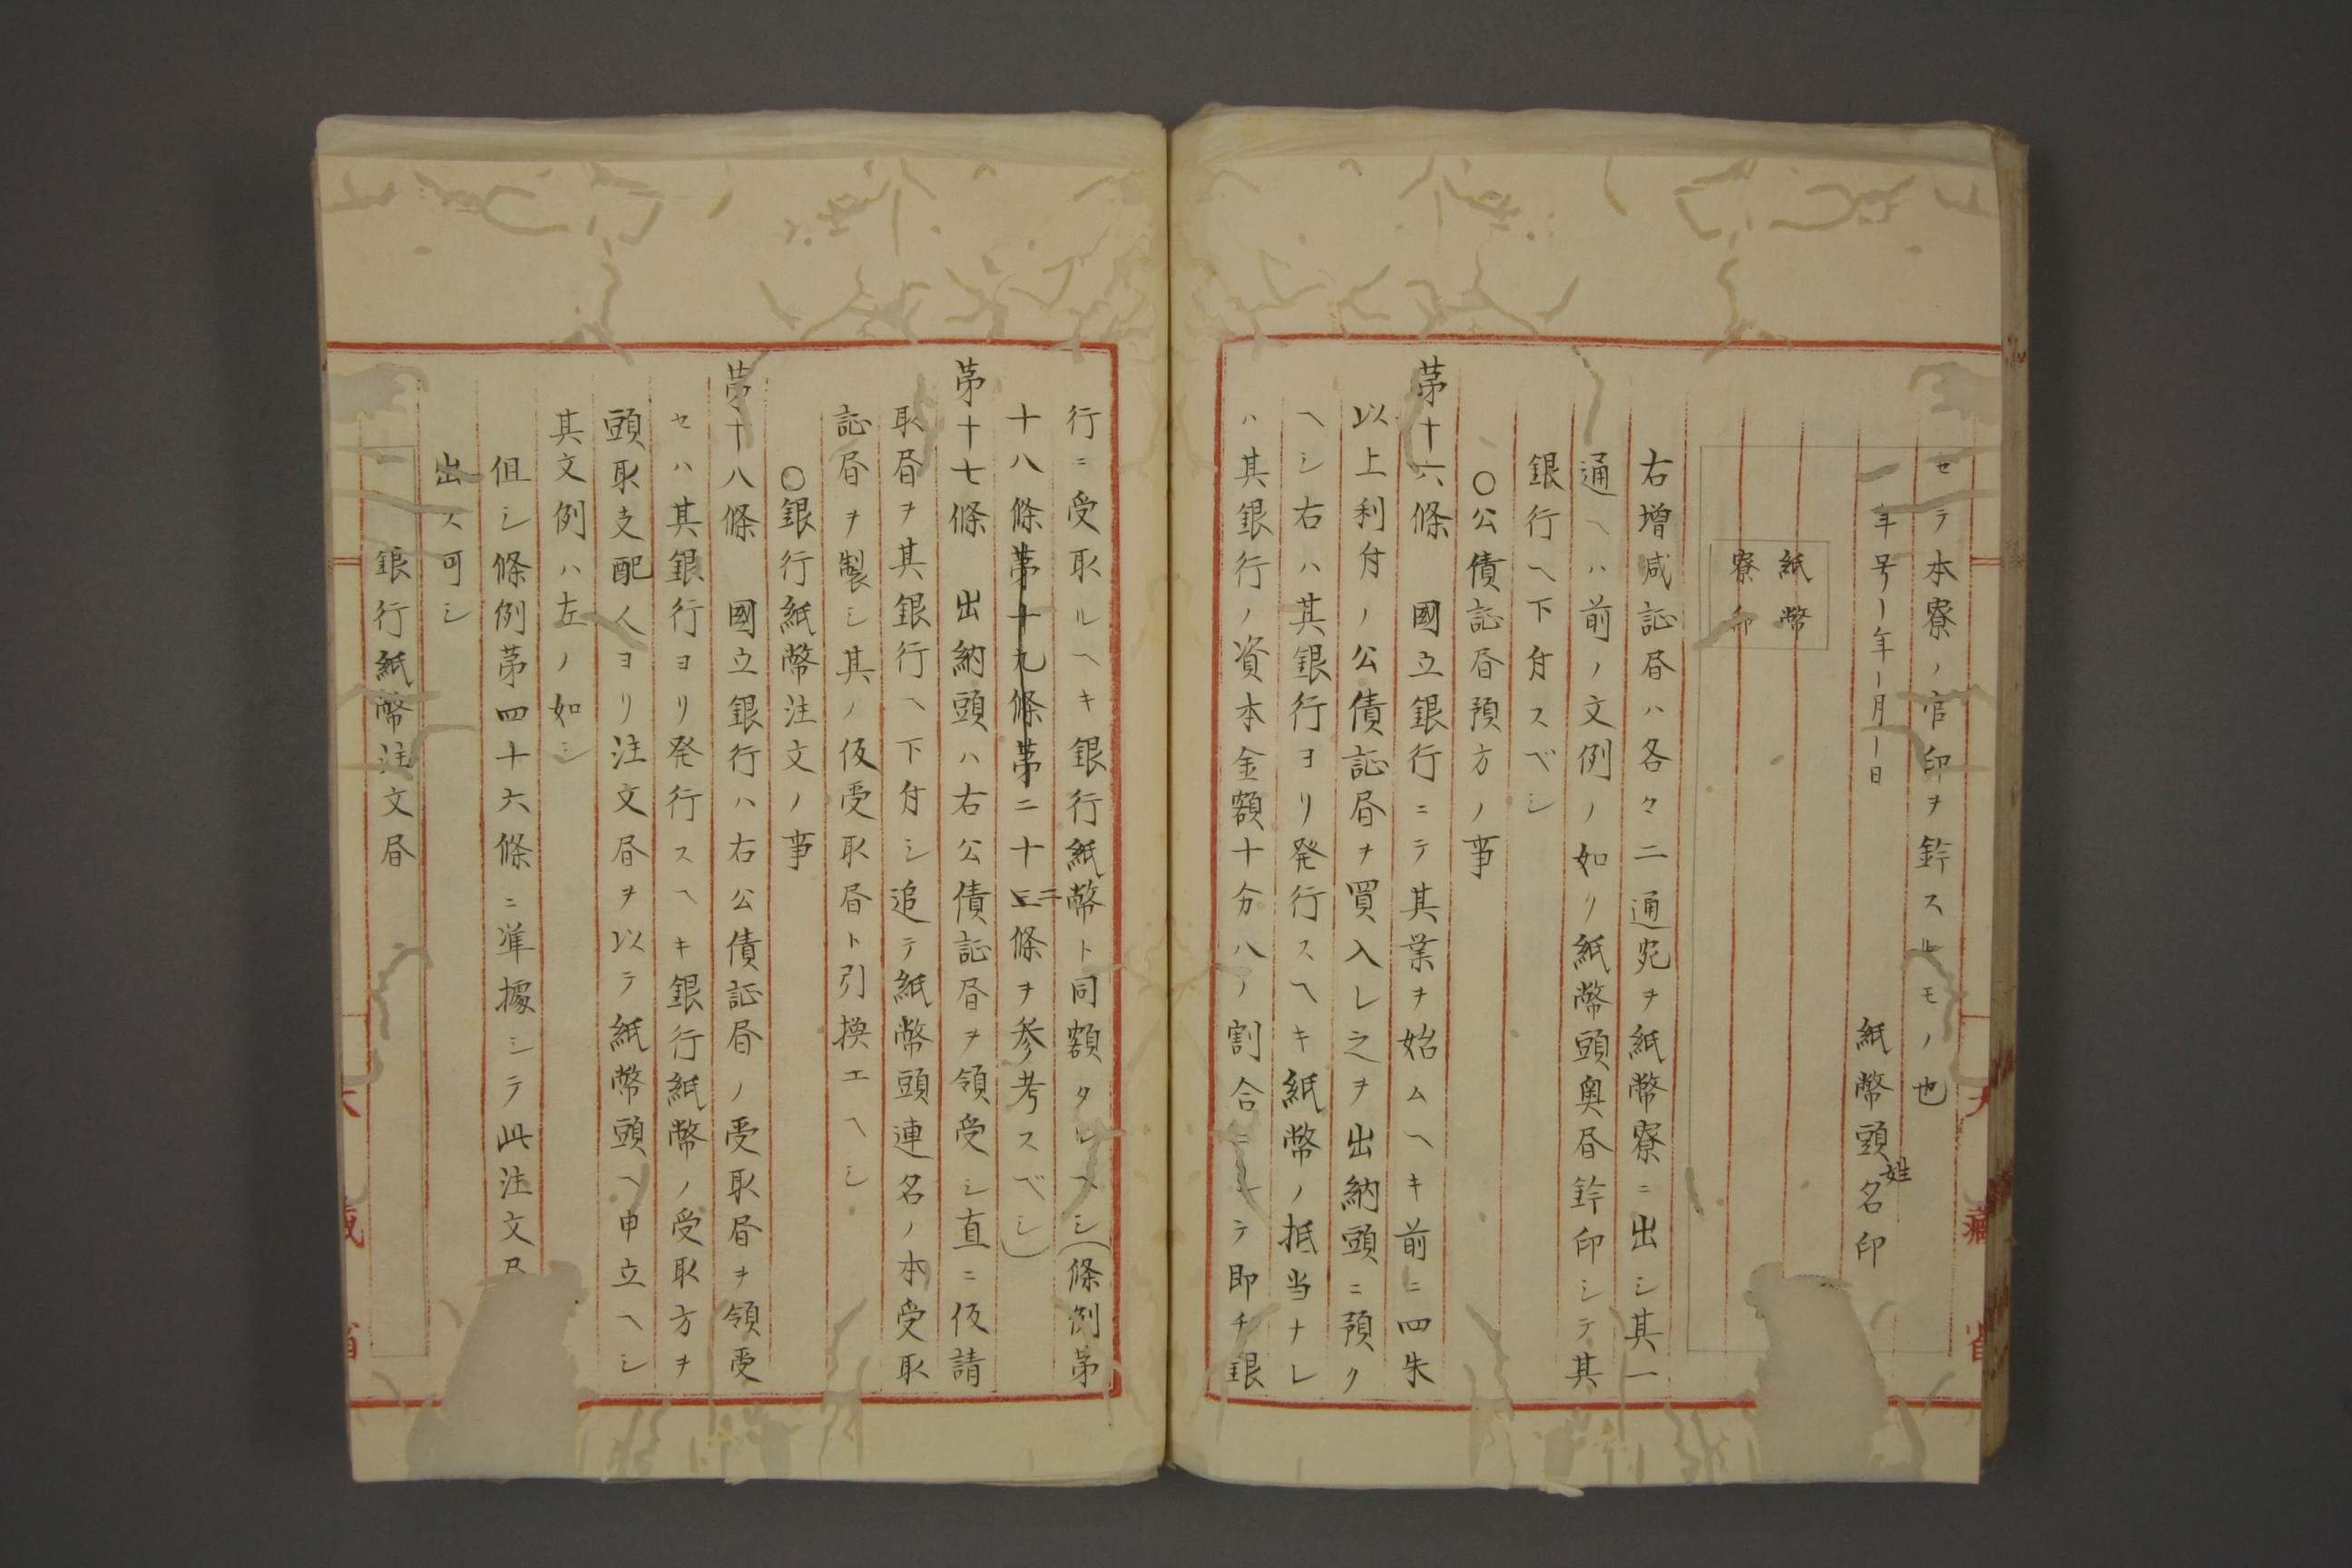 セテ本寮ノ官印ヲ鈐スルモノ也
年号一年一月一日
紙幣頭姓名印
紙幣
寮印
右増减証书ハ各々二通宛ヲ紙幣寮ニ出シ其一
通ヘハ前ノ文例ノ如ク紙幣頭奥书鈐印シテ其
銀行ヘ下付スベシ
〇公債証书預方ノ事
第十六條 國立銀行ニテ其業ヲ始ムヘキ前ニ四朱
以上利付ノ公債証书ヲ買入レ之ヲ出納頭ニ預ク
ヘシ右ハ其銀行ヨリ発行スヘキ紙幣ノ抵当ナレ
ハ其銀行ノ資本金額十分ハノ割合ニシテ即チ銀
行ニ受取ルヘキ銀行紙幣ト同額タルヘシ(條例第
十八條第十九條第二十二條ヲ参考スベシ)
第十七條 出納頭ハ右公債証书ヲ領受シ直ニ仮請
取书ヲ其銀行ヘ下付シ追テ紙幣頭連名ノ本受取
証书ヲ製シ其ノ仮受取书ト引換エヘシ
〇銀行紙幣注文ノ事
第十八條 國立銀行ハ右公債証书ノ受取书ヲ領受
セハ其銀行ヨリ発行スヘキ銀行紙幣ノ受取方ヲ
頭取支配人ヨリ注文书ヲ以テ紙幣頭ヘ申立ヘシ
其文例ハ左ノ如シ
但シ條例第四十六條ニ準據シテ此注文
出ス可シ
銀行紙幣注文书
大藏省